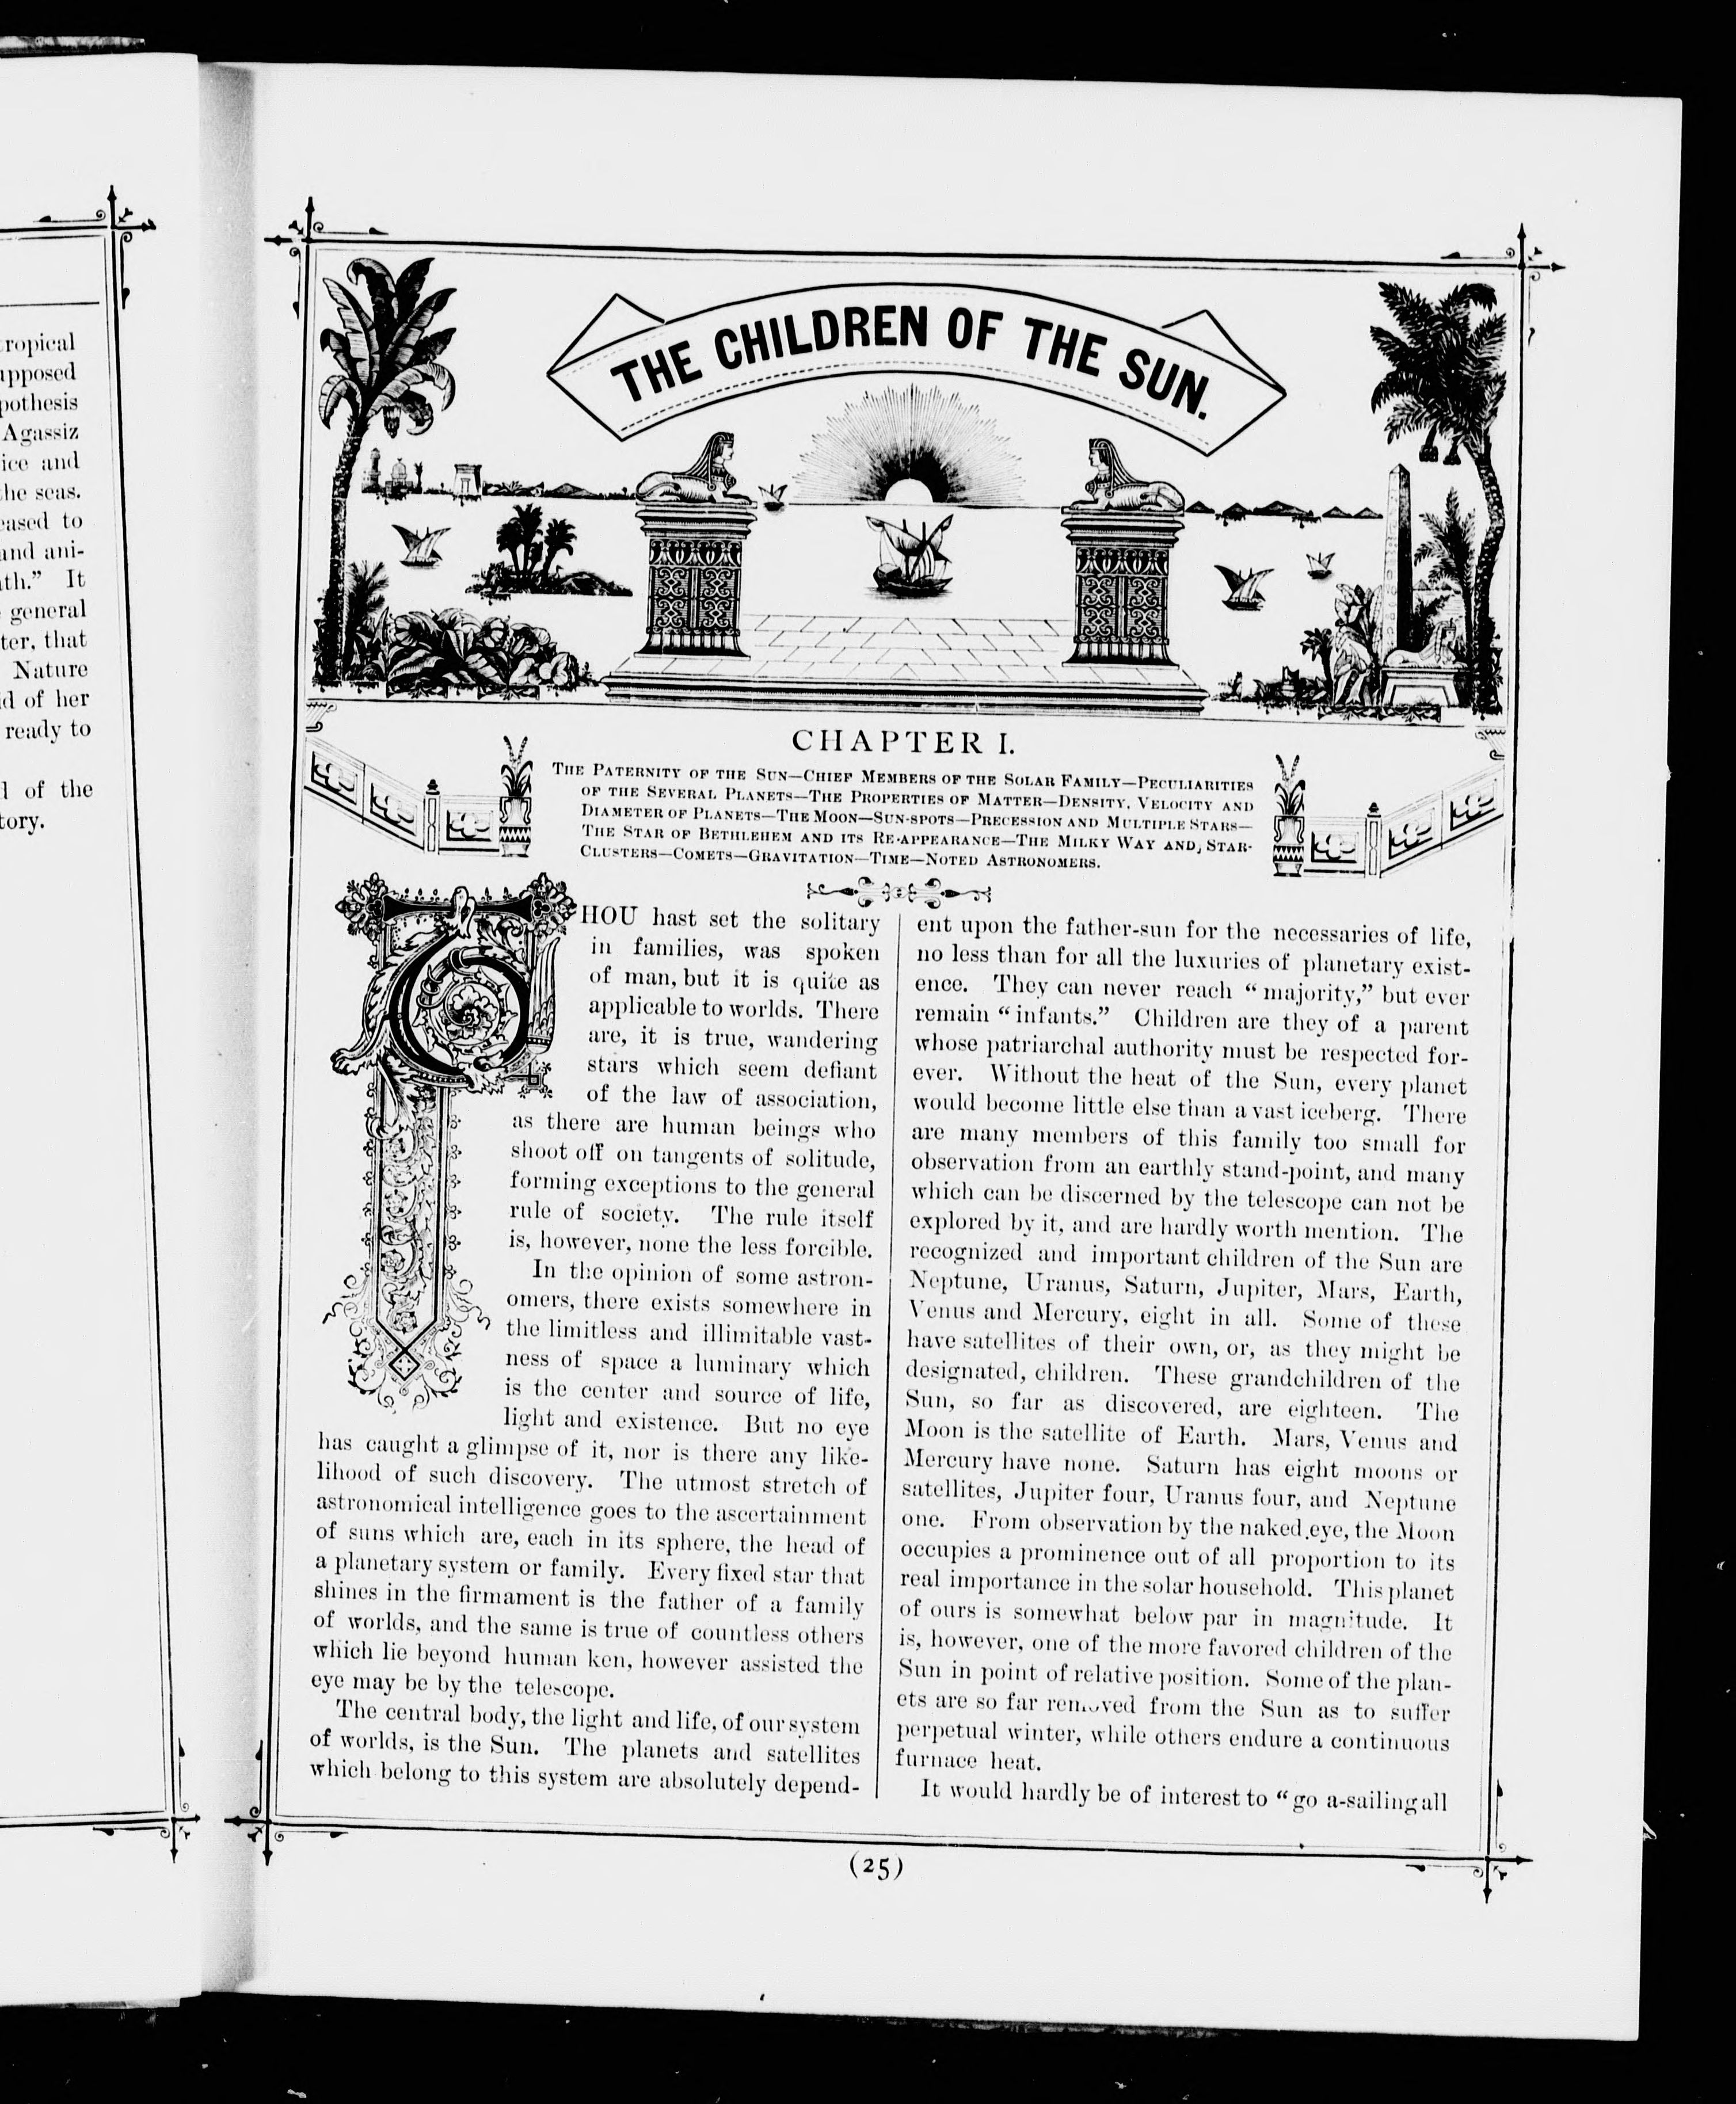 ropical
upposed
pothesis
Agassiz
ice and
the seas.
eased to
and ani-
th.” It
general
ter, that
Nature
d of her
ready to
of the
tory.
THE CHILDREN OF THE SUN.
CHAPTER I.
THE PATERNITY OF THE SUN—CHIEF MEMBERS OF THE SOLAR FAMILY—PECULIARITIES
OF THE SEVERAL PLANETS—THE PROPERTIES OF MATTER—DENSITY, VELOCITY AND
DIAMETER OF PLANETS—THE MOON—SUN-SPOTS—PRECESSION AND MULTIPLE STARS—
THE STAR OF BETHLEHEM AND ITS RE-APPEARANCE—THE MILKY WAY AND STAR-
CLUSTERS—COMETS—GRAVITATION—TIME—NOTED ASTRONOMERS.
THOU hast set the solitary
in families, was spoken
of man, but it is quite as
applicable to worlds. There
are, it is true, wandering
stars which seem defiant
of the law of association,
as there are human beings who
shoot off on tangents of solitude,
forming exceptions to the general
rule of society. The rule itself
is, however, none the less forcible.
In the opinion of some astron-
omers, there exists somewhere in
the limitless and illimitable vast-
ness of space a luminary which
is the center and source of life,
light and existence. But no eye
has caught a glimpse of it, nor is there any like-
lihood of such discovery. The utmost stretch of
astronomical intelligence goes to the ascertainment
of suns which are, each in its sphere, the head of
a planetary system or family. Every fixed star that
shines in the firmament is the father of a family
of worlds, and the same is true of countless others
which lie beyond human ken, however assisted the
eye may be by the telescope.
The central body, the light and life, of our system
of worlds, is the Sun. The planets and satellites
which belong to this system are absolutely depend-
ent upon the father-sun for the necessaries of life,
no less than for all the luxuries of planetary exist-
ence. They can never reach “majority,” but ever
remain “infants.” Children are they of a parent
whose patriarchal authority must be respected for-
ever. Without the heat of the Sun, every planet
would become little else than a vast iceberg. There
are many members of this family too small for
observation from an earthly stand-point, and many
which can be discerned by the telescope can not be
explored by it, and are hardly worth mention. The
recognized and important children of the Sun are
Neptune, Uranus, Saturn, Jupiter, Mars, Earth,
Venus and Mercury, eight in all. Some of these
have satellites of their own, or, as they might be
designated, children. These grandchildren of the
Sun, so far as discovered, are eighteen. The
Moon is the satellite of Earth. Mars, Venus and
Mercury have none. Saturn has eight moons or
satellites, Jupiter four, Uranus four, and Neptune
one. From observation by the naked eye, the Moon
occupies a prominence out of all proportion to its
real importance in the solar household. This planet
of ours is somewhat below par in magnitude. It
is, however, one of the more favored children of the
Sun in point of relative position. Some of the plan-
ets are so far removed from the Sun as to suffer
perpetual winter, while others endure a continuous
furnace heat.
It would hardly be of interest to “go a-sailing all
(25)